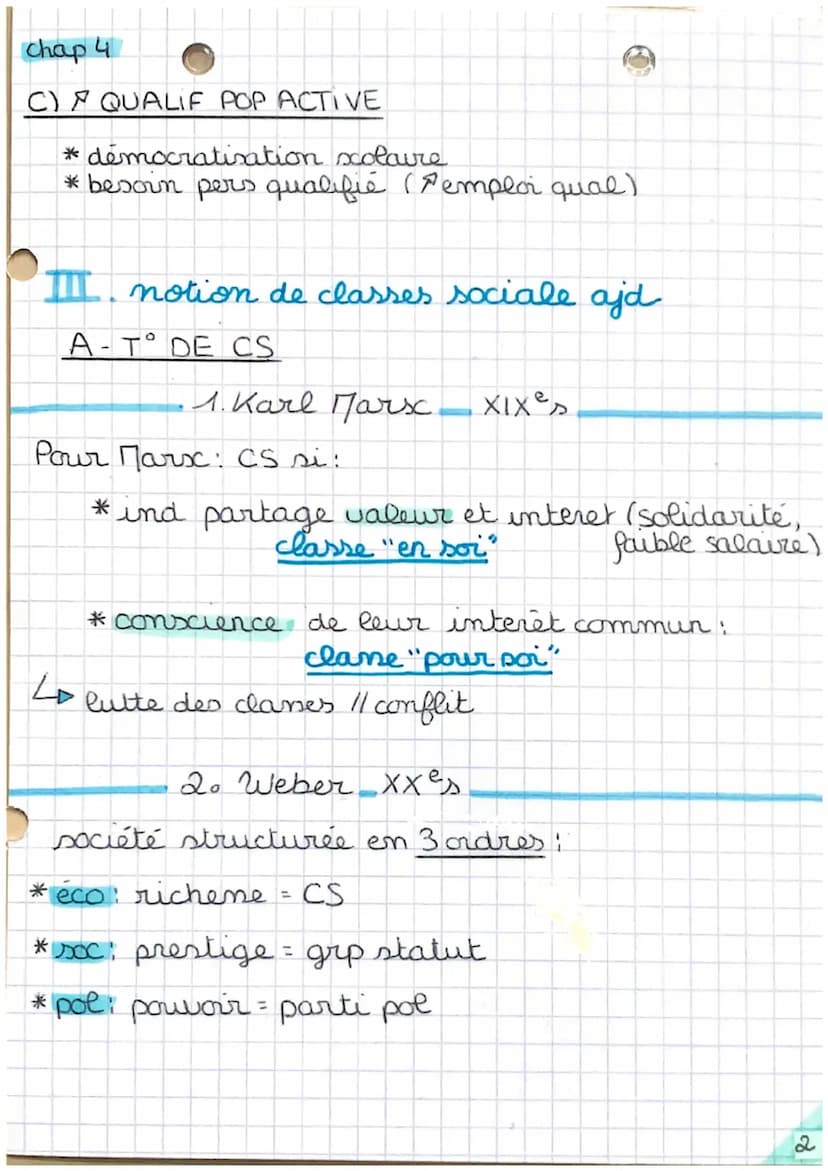 chap 4
C) ↗ QUALIF POP ACTIVE
* démocratisation scolaire
* besoin pers qualifié (↗emploi qual)
III. notion de classes sociale ajd
A - T° DE CS
1. Karl Marx _ XIXes
Pour Marx : CS si :
* ind partage valeur et interet (solidarité,
classe "en soi" faible salaire)
* conscience de leur interêt commun :
classe "pour soi"
↳ lutte des classes // conflit
2. Weber _ XXes
société structurée en 3 ordres :
* éco : richesse = CS
* soc : prestige = grp statut
* pol : pouvoir = parti pol
2